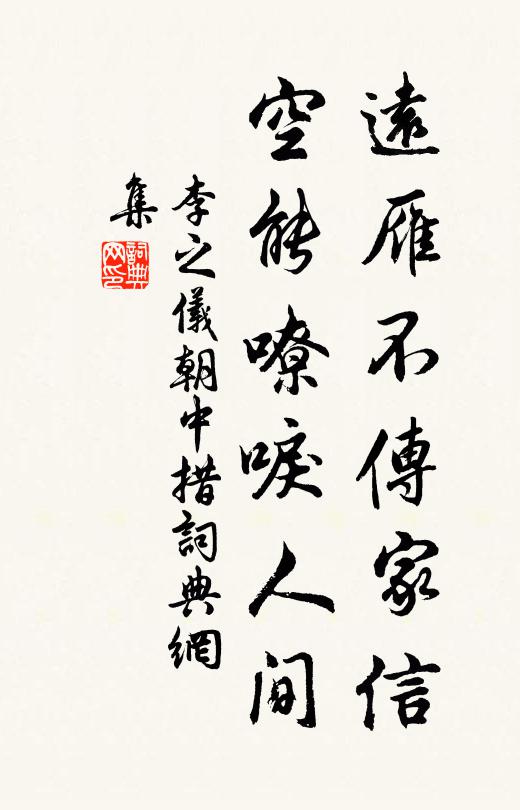 遠雁不傳家信
空能嘹唳人间
李之儀朝中措詞典網
集
詞典网印